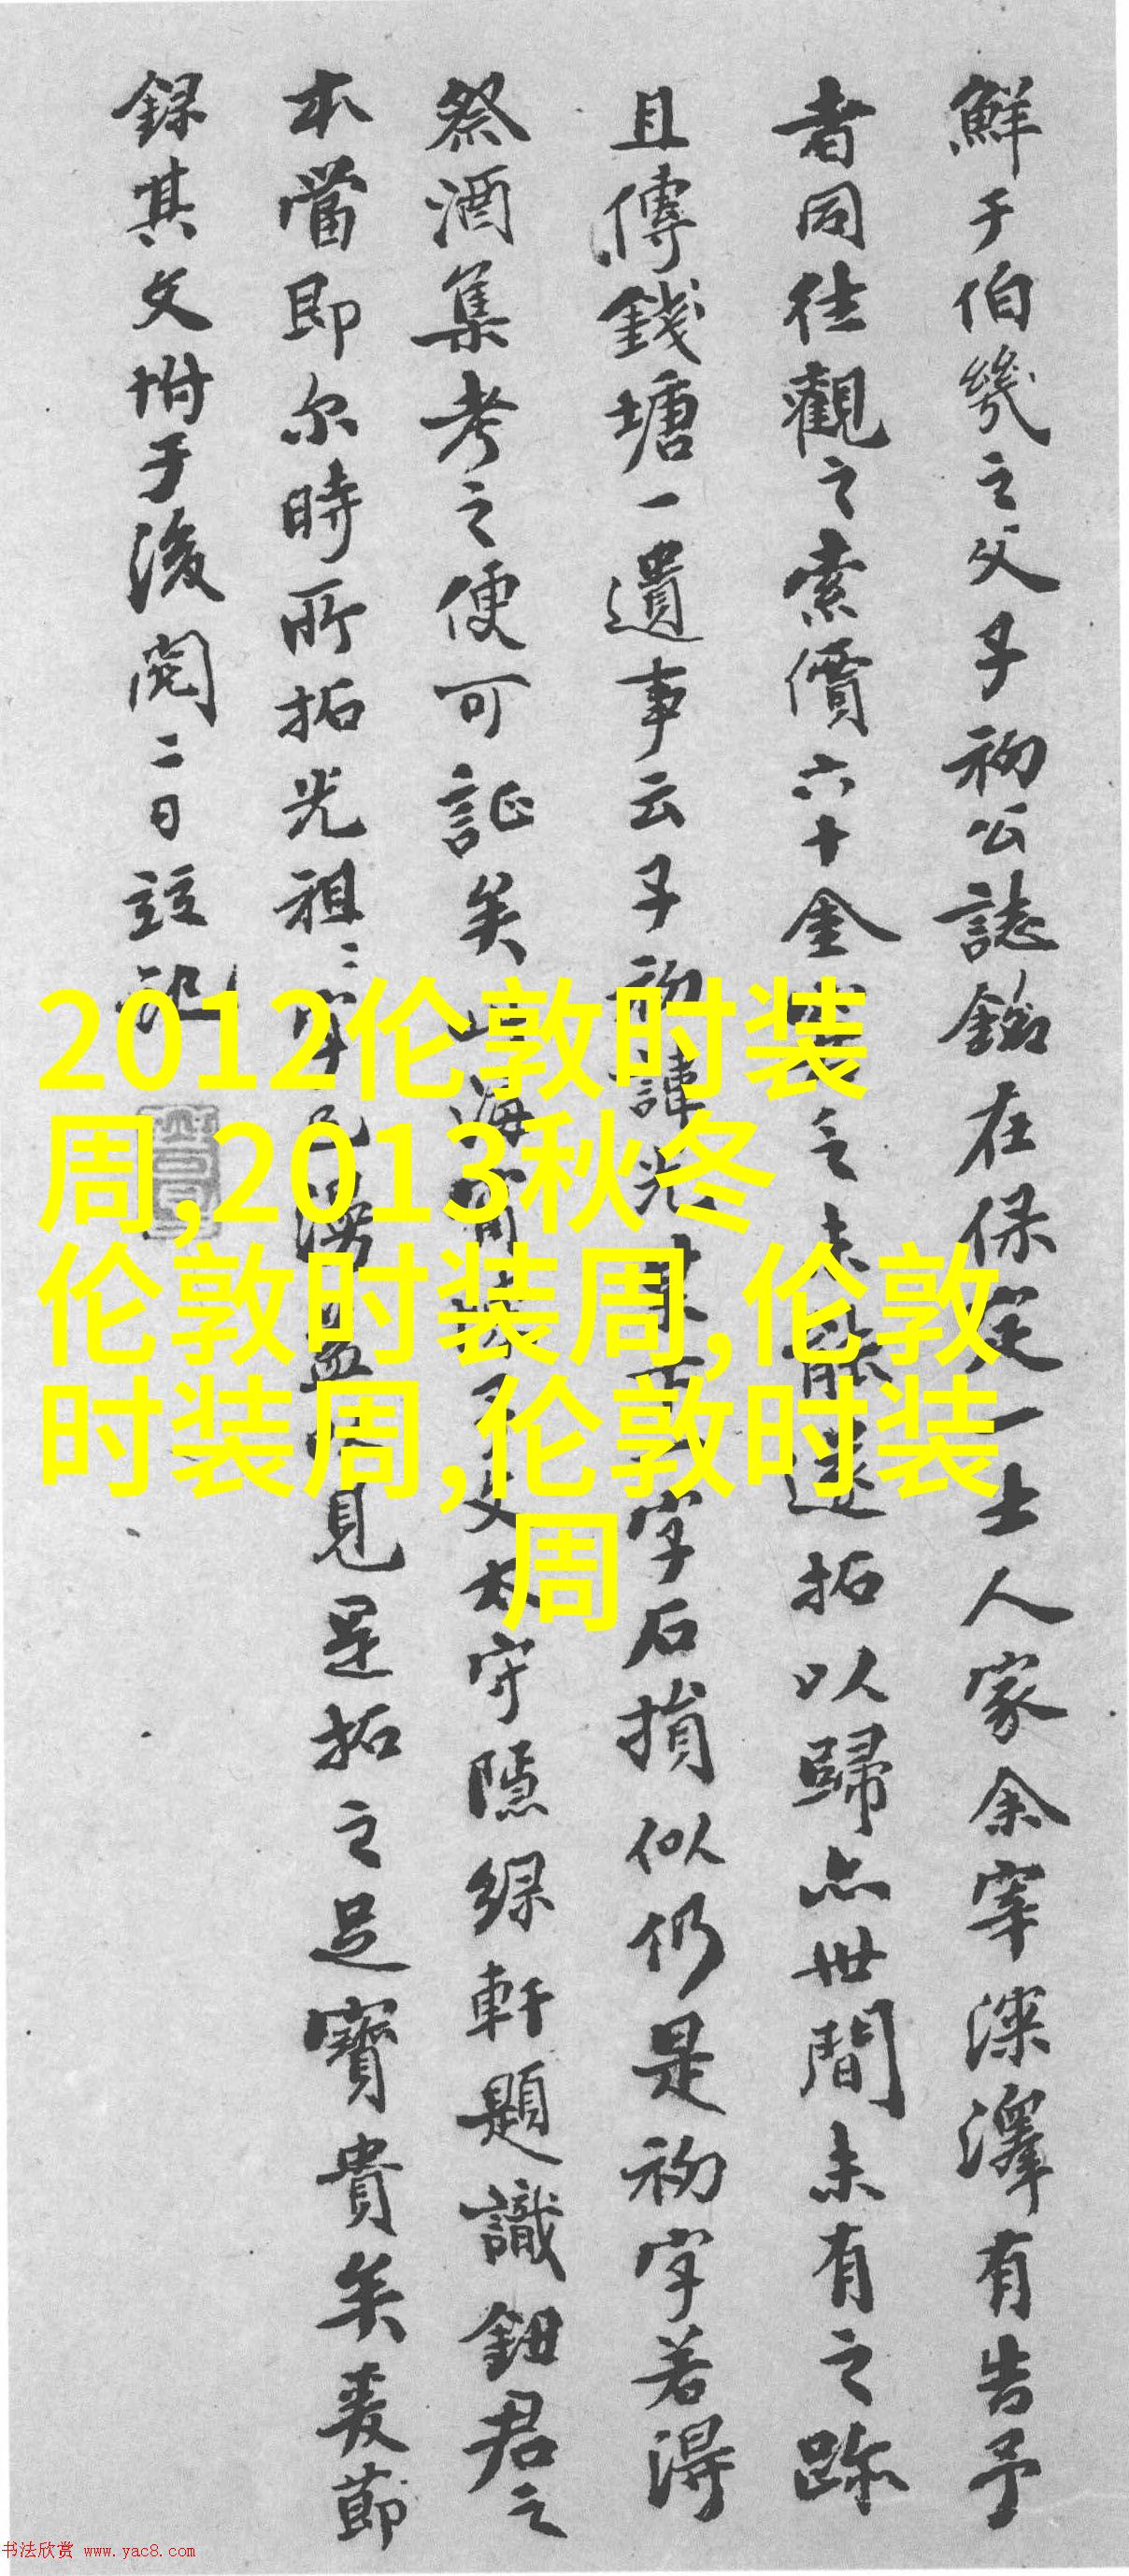 鮮于伯幾之父子初公誌銘在保定一士人家余宰深澤有告予
者同往觀之索價六十金 之未能遂拓以歸亦世間未有之跡
且傳錢塘一遺事云子初諱光 字石損似仍是初字若得
祭酒集考之便可証矣 海 太守隱綠軒題識鈕君之
本當即尔時所拓光祖 見是拓之足寶貴矣爰節
錄其文坿于後閱二日
2012伦敦时装
周,2013秋冬
伦敦时装周,伦敦
时装周,伦敦时装
周
书法欣赏 www.yac8.com